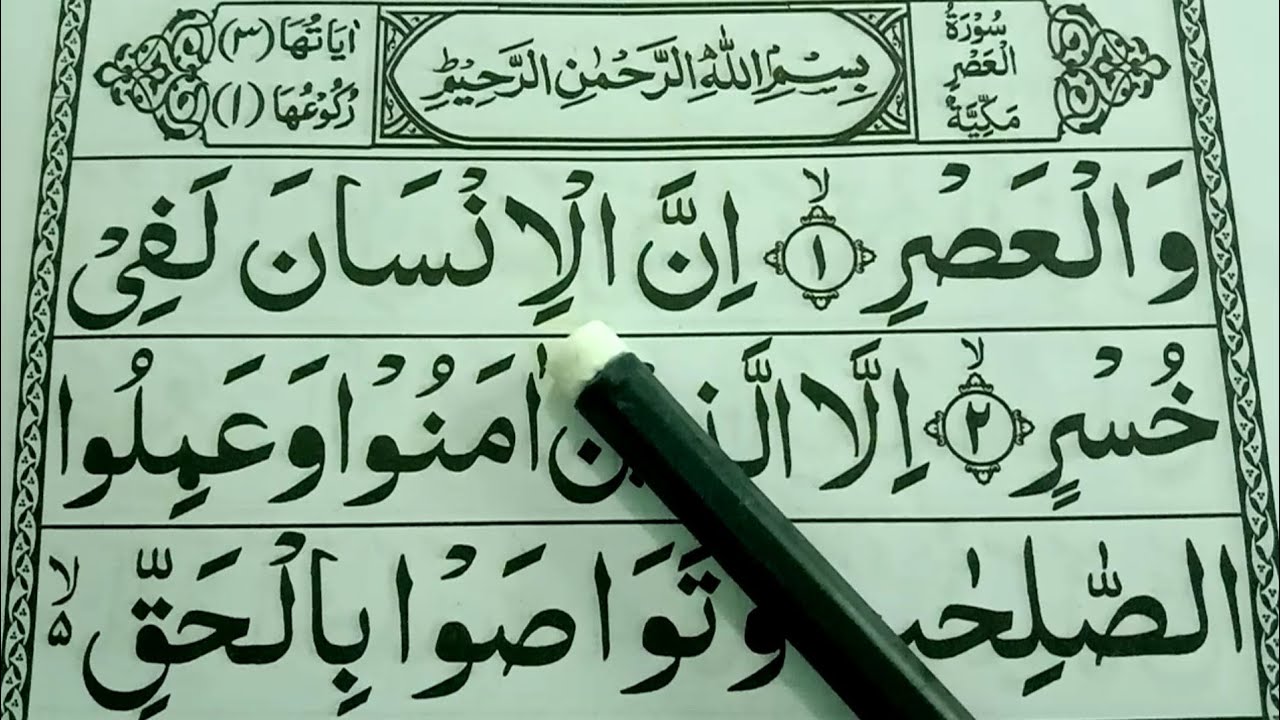 سُوْرَةُ الْعَصْرِ مَكِّيَّةٌ
بِسْمِ اللّٰهِ الرَّحْمٰنِ الرَّحِيْمِ
اٰيَاتُهَا (٣)
رُكُوْعُهَا (١)
وَالْعَصْرِ ۙ﴿١﴾ اِنَّ الْاِنْسَانَ لَفِيْ
خُسْرٍ ۙ﴿٢﴾ اِلَّا اٰمَنُوْا وَعَمِلُوا
وَتَوَاصَوْا بِالْحَقِّ ۙ۵